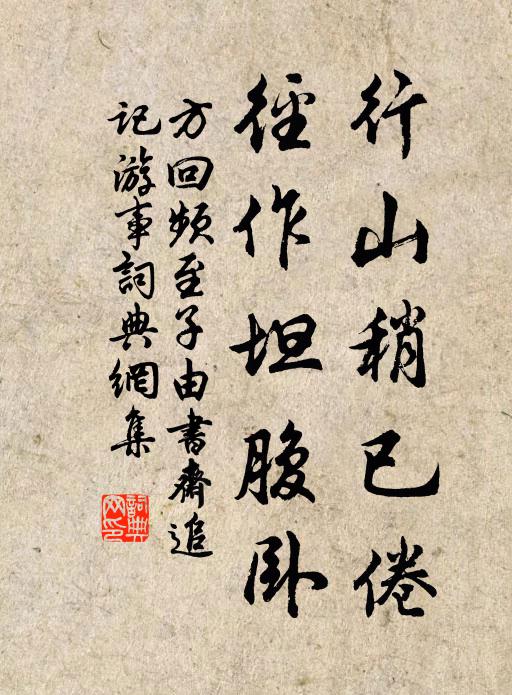 行山稍已倦
徑作坦腹臥
方回頻至子由書齋追
記游事詞典網集
詞典網印